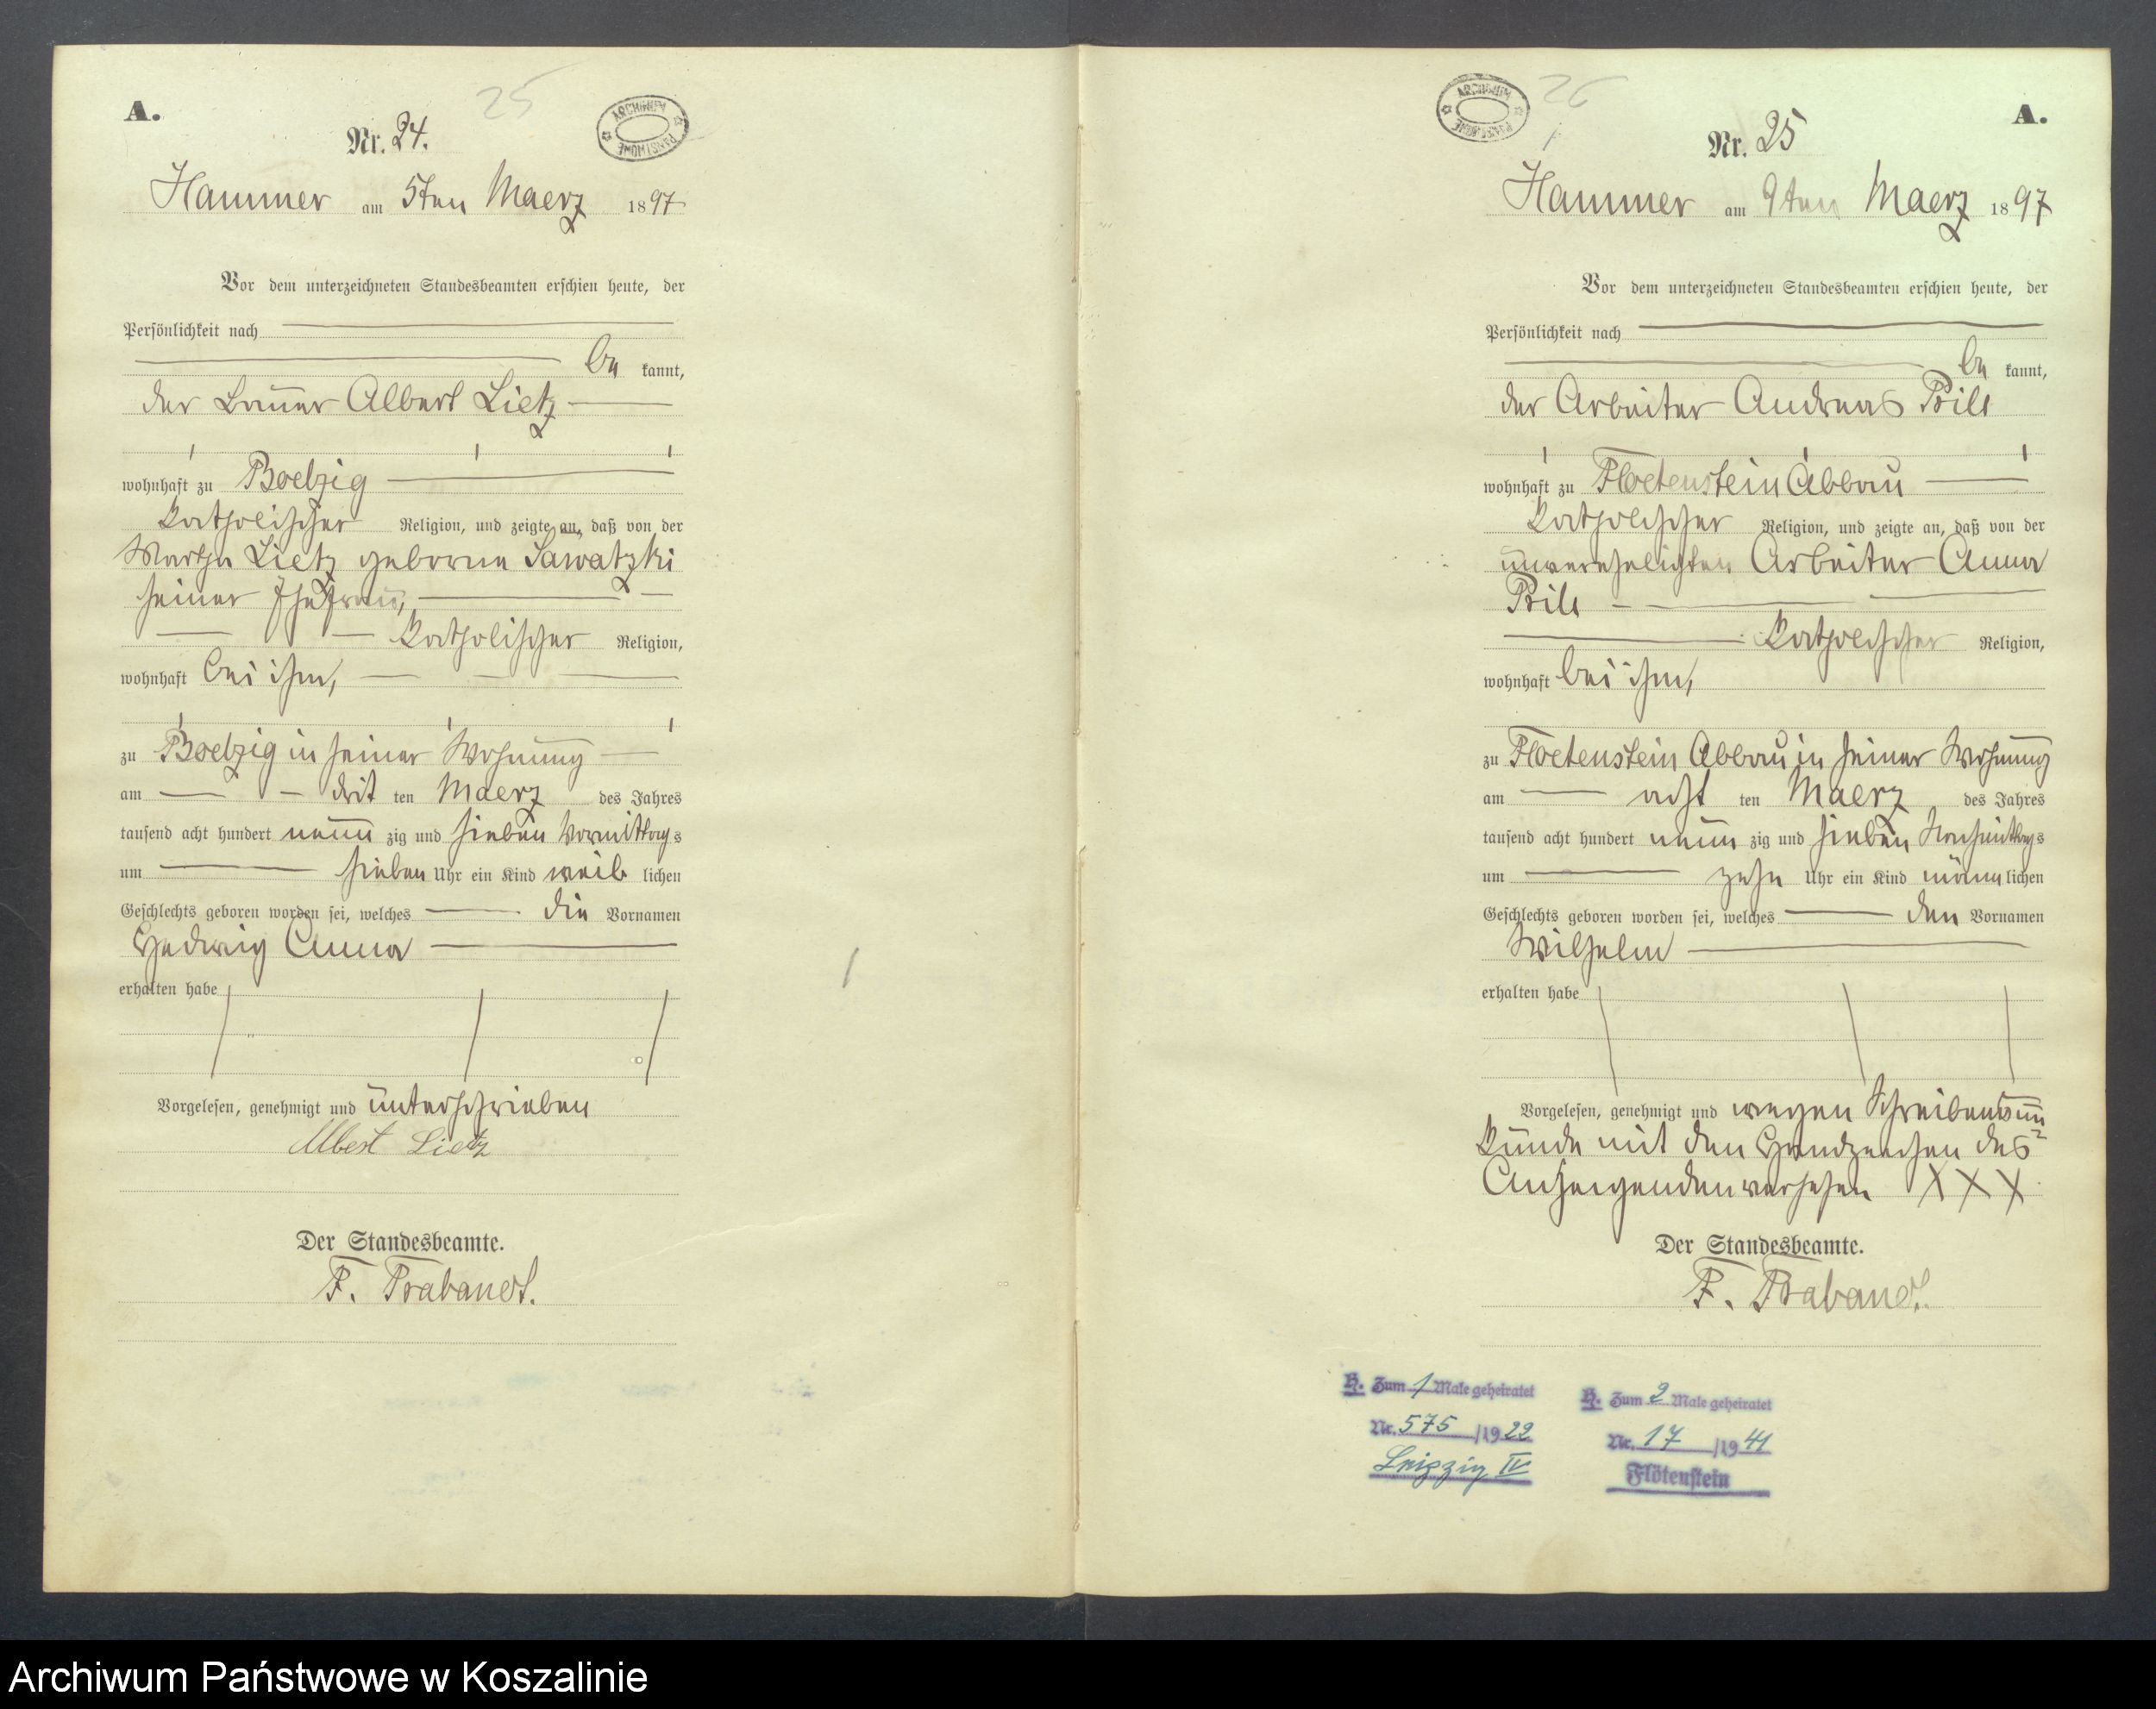 A.
25
ARCHIWUM PAŃSTWOWE
Nr. 24.
Hammer am 5ten Maerz 1897
Vor dem unterzeichneten Standesbeamten erschien heute, der
Persönlichkeit nach
be kannt,
der Bauer Albert Lietz
wohnhaft zu Boelzig
katholischer Religion, und zeigte an, daß von der
Martha Lietz geborne Sawatzki
seiner Ehefrau,
katholischer Religion,
wohnhaft bei ihm,
zu Boelzig in seiner Wohnung
am drit ten Maerz des Jahres
tausend acht hundert neun zig und sieben Vormittags
um sieben Uhr ein Kind weib lichen
Geschlechts geboren worden sei, welches die Vornamen
Hedwig Anna
erhalten habe
Vorgelesen, genehmigt und unterschrieben
Albert Lietz
Der Standesbeamte.
F. Prabandt.
ARCHIWUM PAŃSTWOWE
26
A.
Nr. 25
Hammer am 9ten Maerz 1897
Vor dem unterzeichneten Standesbeamten erschien heute, der
Persönlichkeit nach
be kannt,
der Arbeiter Andreas
wohnhaft zu Floetenstein Abbau
katholischer Religion, und zeigte an, daß von der
unverehelichten Arbeiter Anna
katholischer Religion,
wohnhaft bei ihm,
zu Floetenstein Abbau in seiner Wohnung
am acht ten Maerz des Jahres
tausend acht hundert neun zig und sieben Nachmittags
um zehn Uhr ein Kind männ lichen
Geschlechts geboren worden sei, welches den Vornamen
Wilhelm
erhalten habe
Vorgelesen, genehmigt und wegen Schreibensun
kunde mit den Handzeichen des
Anzeigenden versehen XXX
Der Standesbeamte.
F. Prabandt.
H. Zum 1 Male geheiratet
Nr. 575 /1922
Leipzig IV
H. Zum 2 Male geheiratet
Nr. 17 /1941
Flötenstein
Archiwum Państwowe w Koszalinie